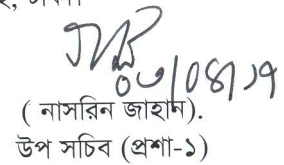 ০৩/০৪/১৭
( নাসরিন জাহান).
উপ সচিব (প্রশা-১)